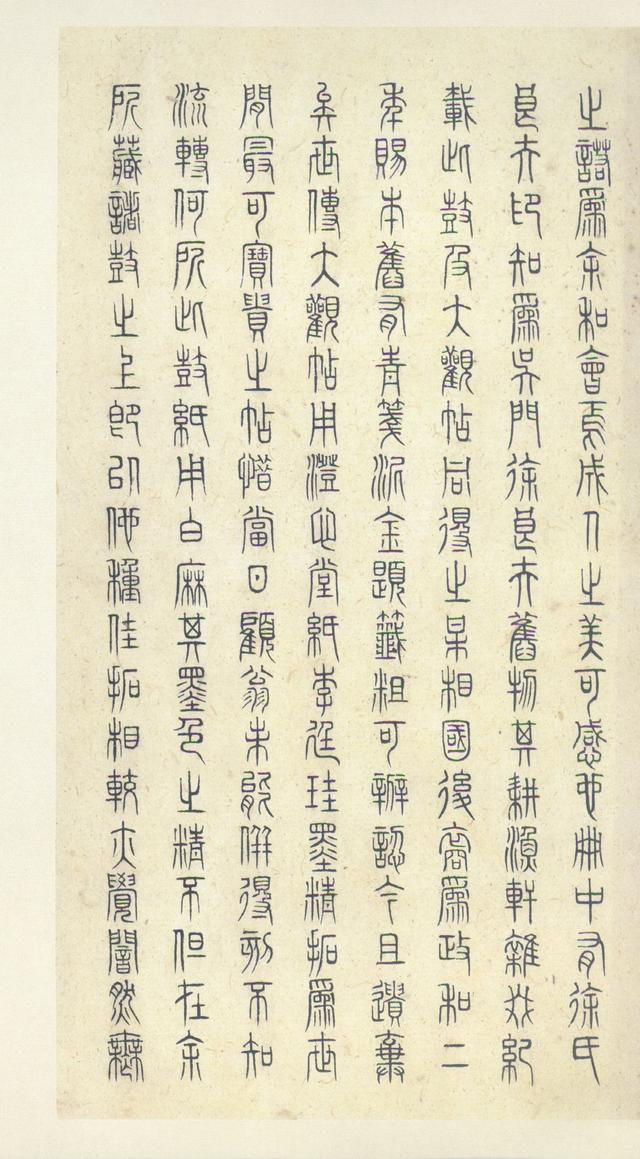 之諾爲余和會焉成人之美可感也冊中有徐氏
良夫印知爲吳門徐良夫舊物其耕漁軒雜錄紀
載此鼓及大觀帖同得之某相國後裔爲政和二
年賜本舊有青箋泥金題籤粗可辦認今且遺棄
矣世傳大觀帖用澄心堂紙李廷珪墨精拓爲世
間最可寶貴之帖惜當日顧翁未能併得刻不知
流轉何所此鼓紙用白麻其墨色之精不但在余
所藏諸鼓之上卽以他種佳拓相較亦覺闇然無